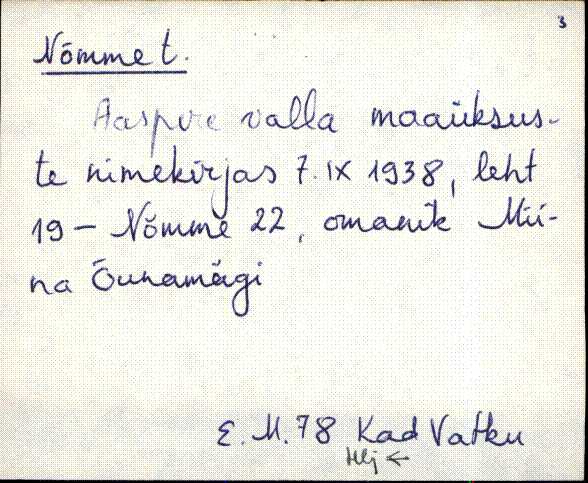 3
Nõmme t.
Aaspere valla maaüksus-
te nimekirjas 7. IX 1938, leht
19 – Nõmme 22, omanik Mii-
na Õunamägi
E. M. 78 Kad Vatku
Hlj ←